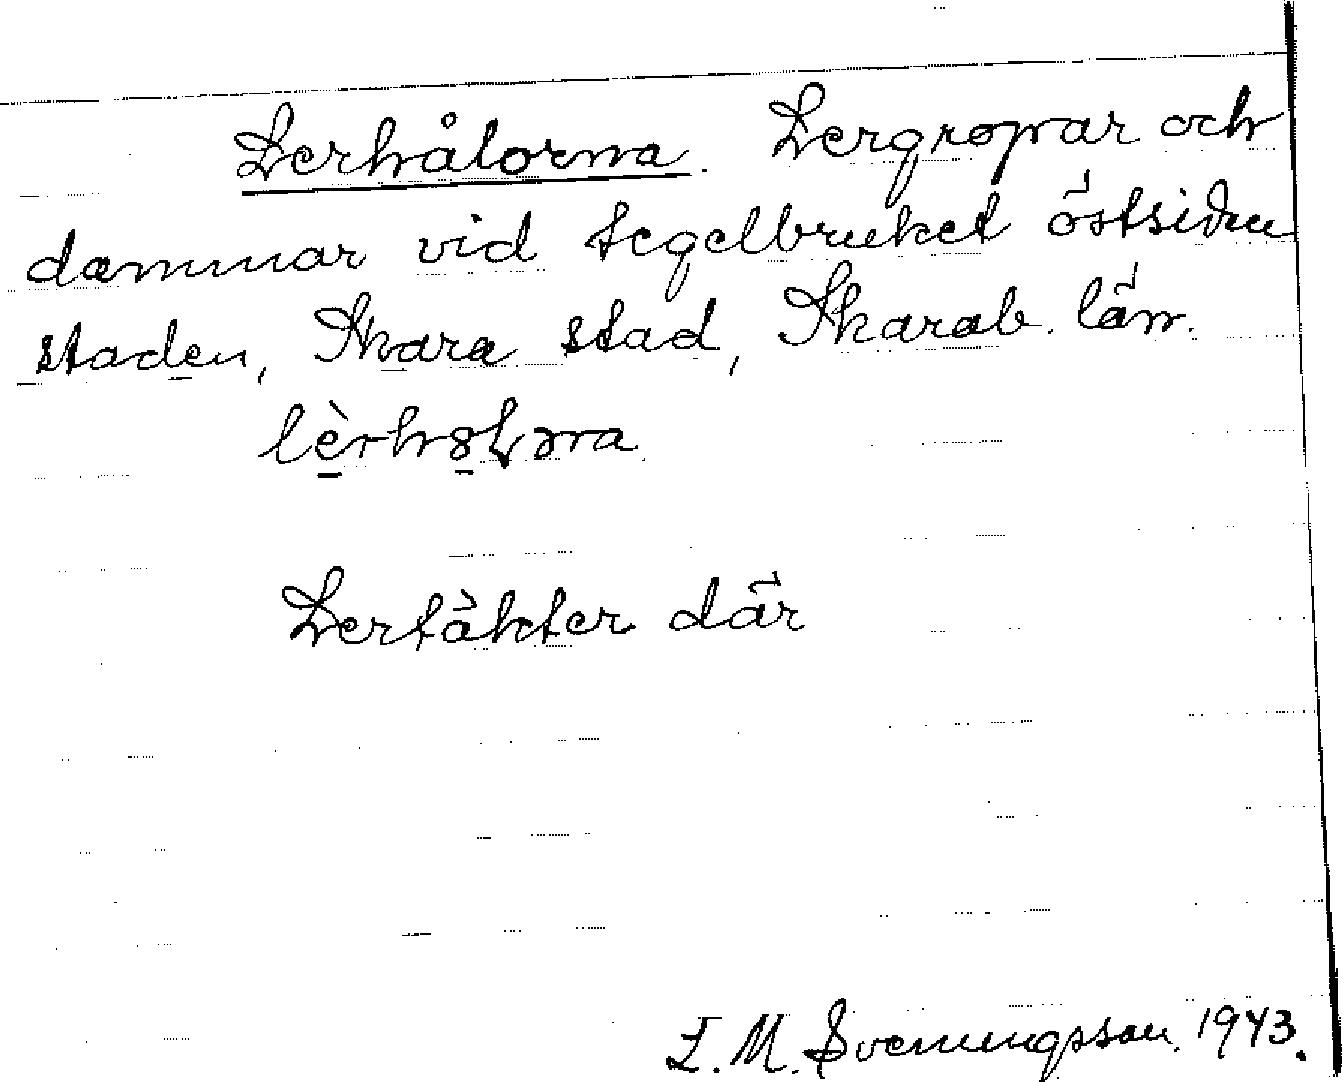 Lerhålorna. Lergropar och
dammar vid tegelbruket östsiden
staden, Skara stad, Skarab. län.
lèrhɷLɔna
Lertäkter där
I. M. Svenungsson. 1943.